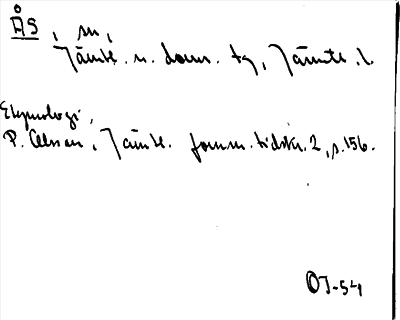 ÅS, sn,
Jämtl. n. doms. tg, Jämtl. l.
Etymologi,
P. Olsson, Jämtl. fornm. tidskr. 2, s. 156.
OJ-54